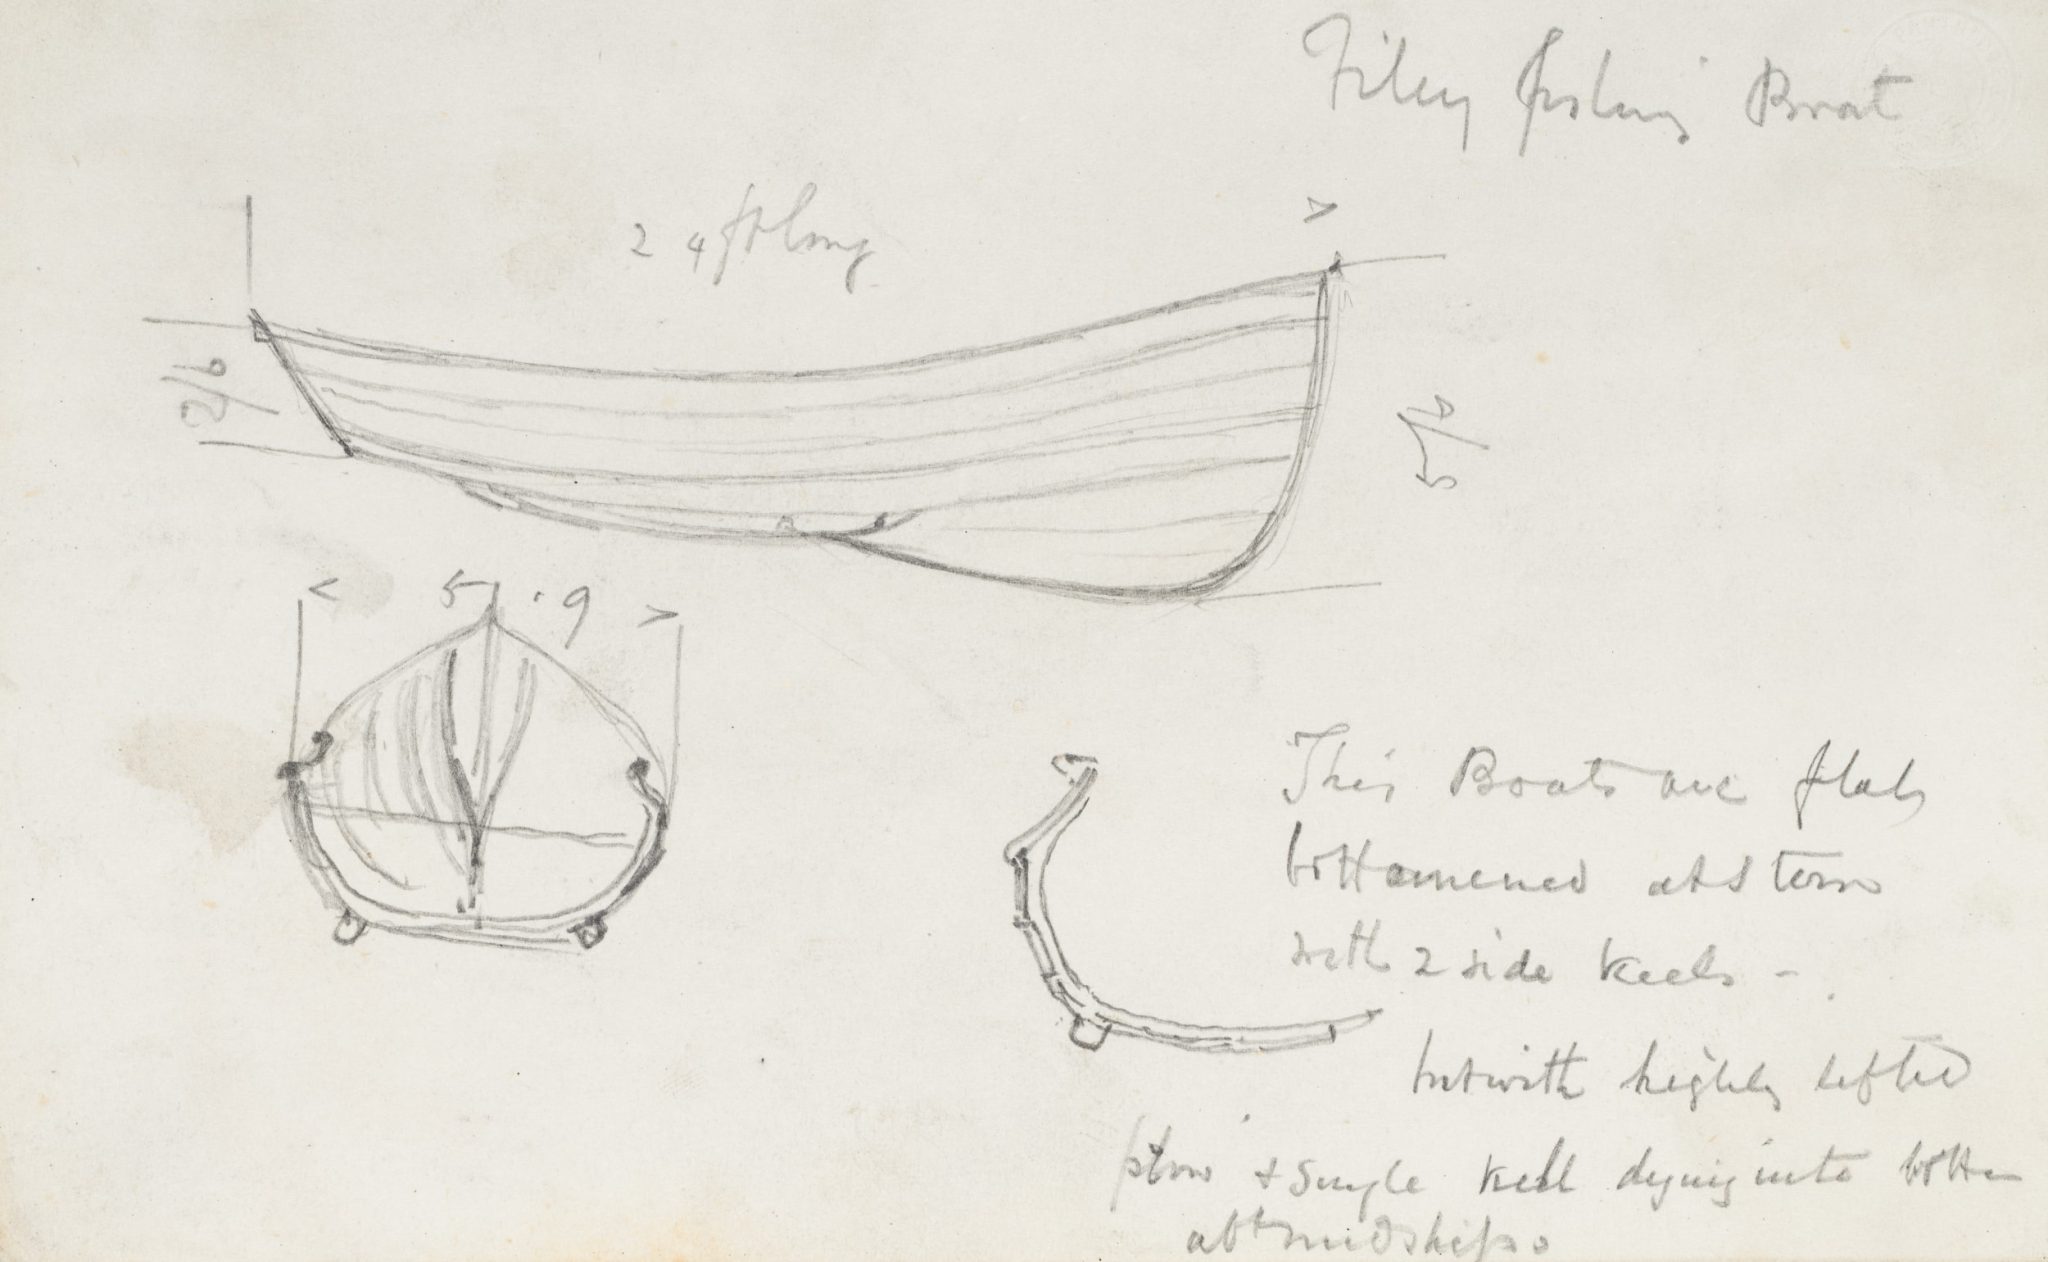 Filey fishing Boat
24 ft long
2/6
5/6
5 . 9
This Boats are flat
bottomened at stern
with 2 side keels -
but with highly lifted
& single keel dying into bottom
abt midships